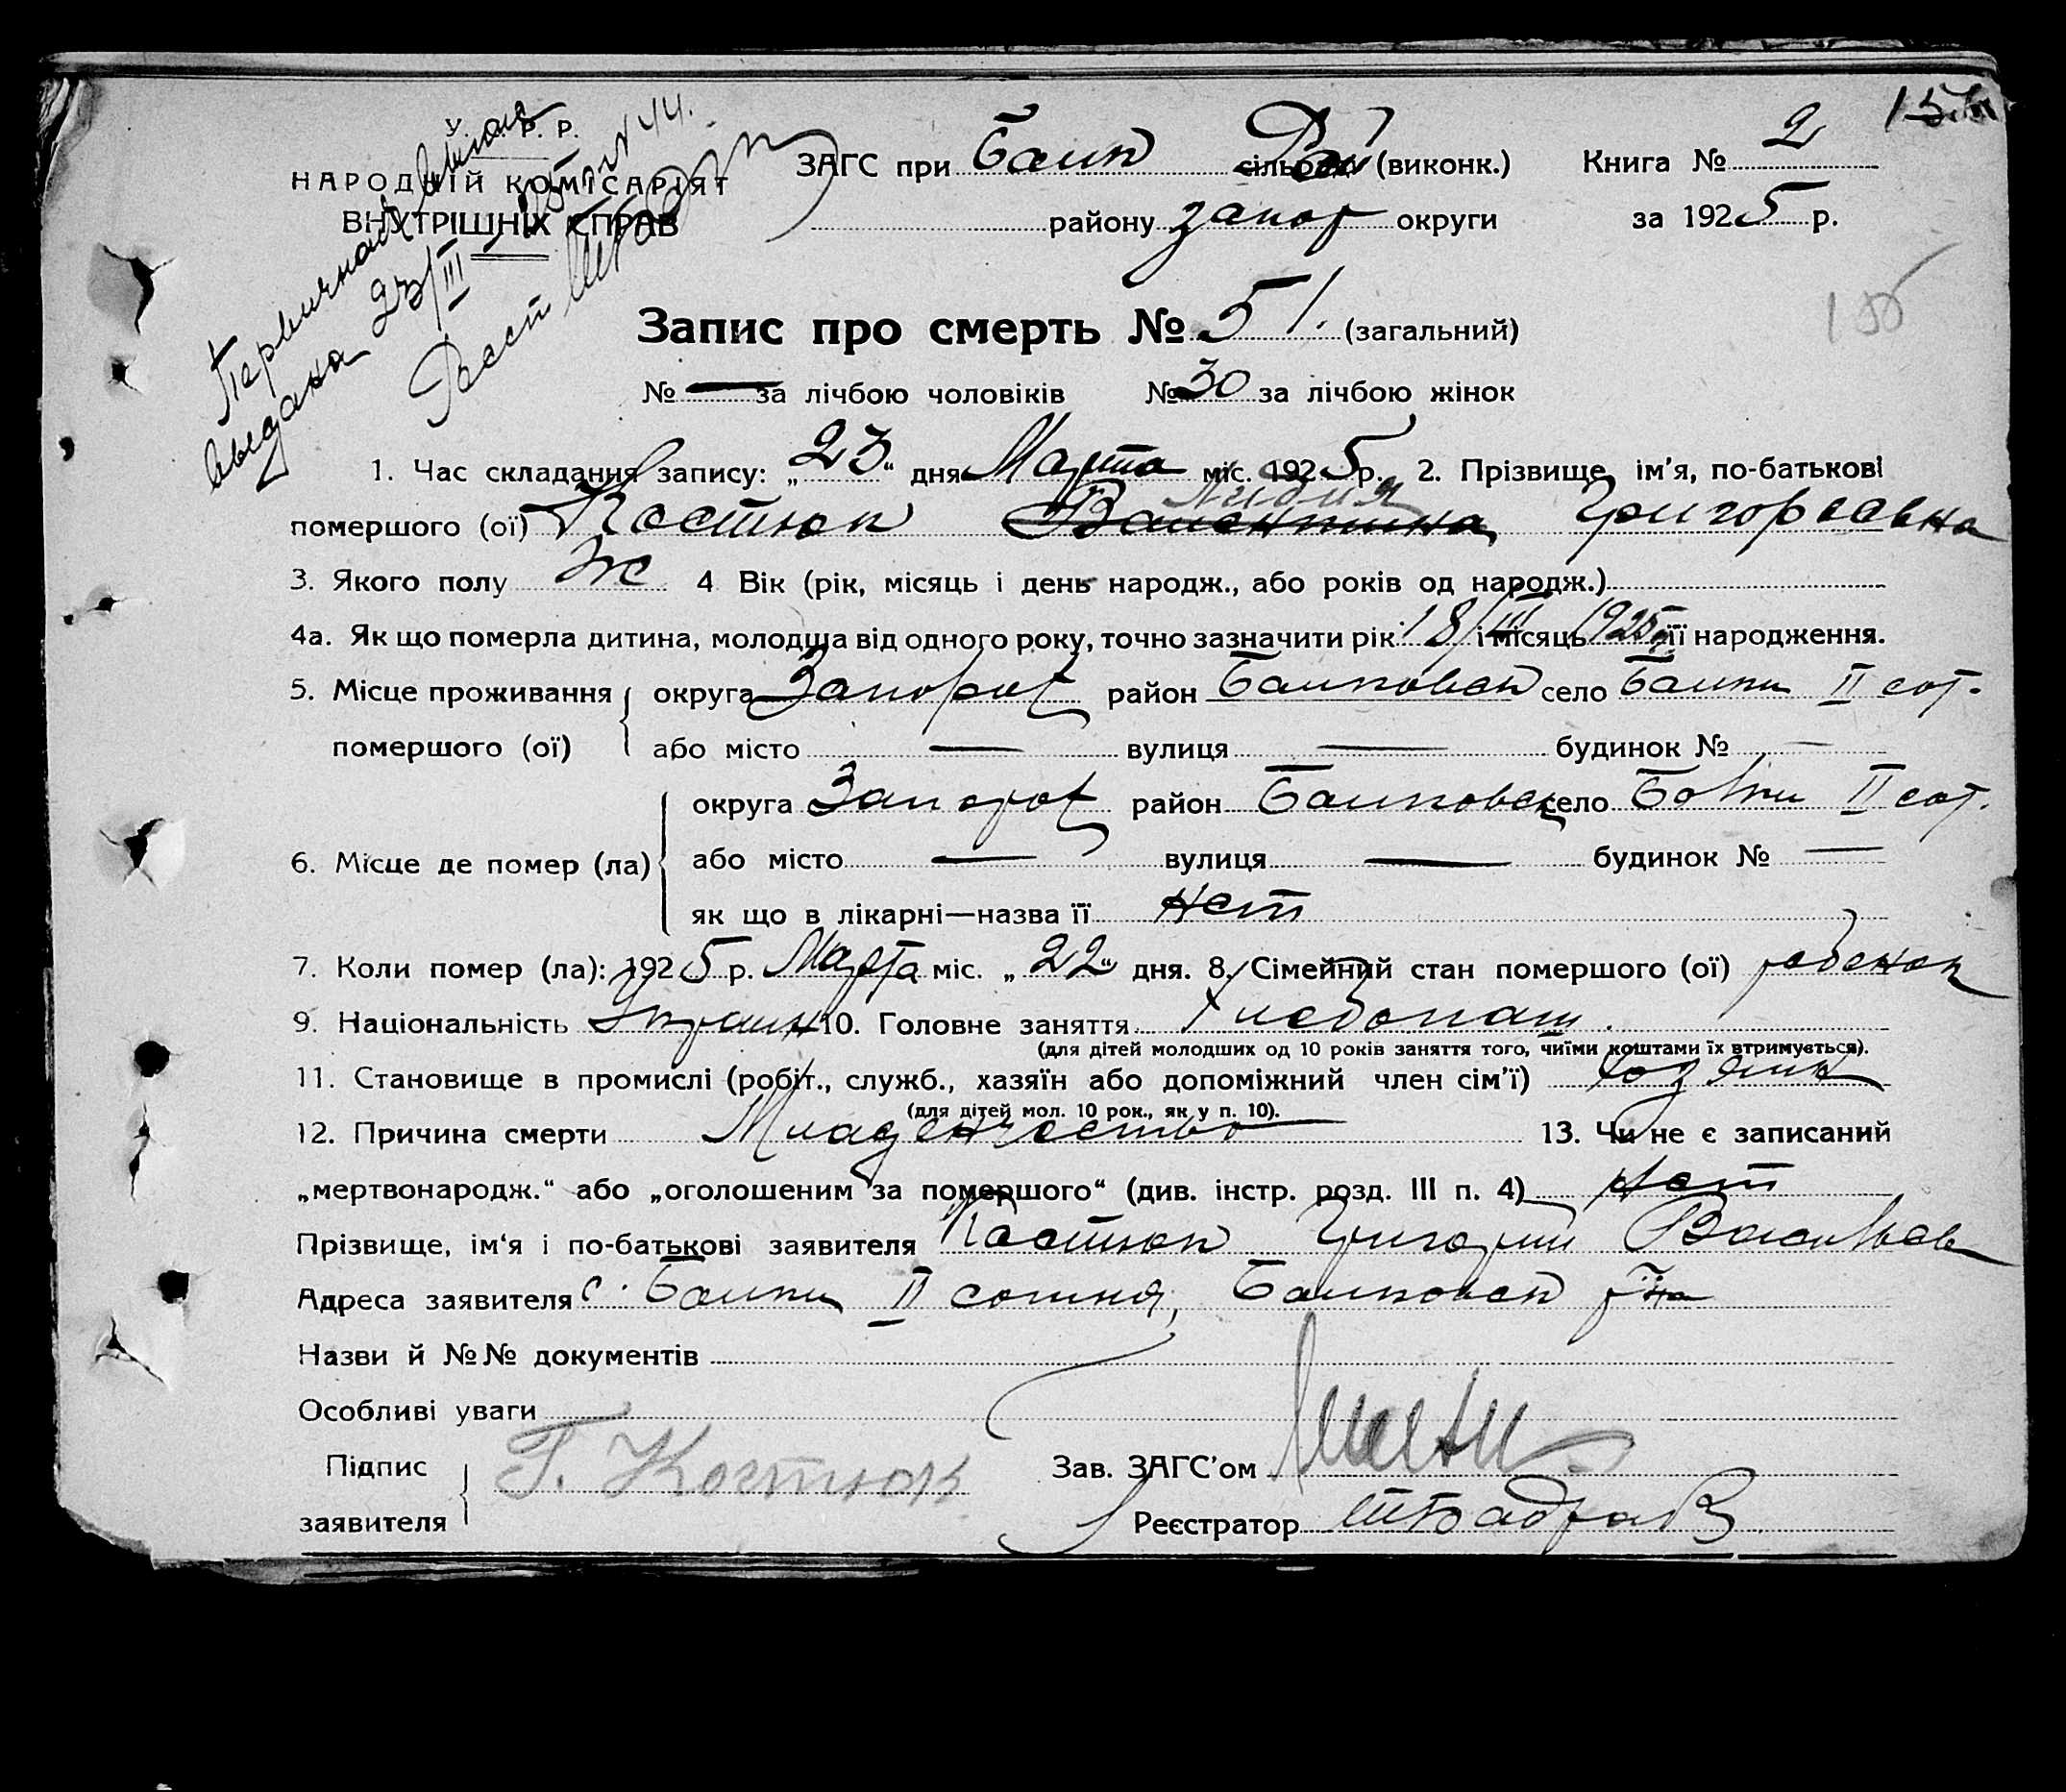 У. Р. Р.
НАРОДНІЙ КОМІСАРІЯТ
ВНУТРІШНІХ СПРАВ
Первичная выпись
выдана 23/III 25 г. № 44.
ЗАГС при Балк Рай сільради (виконк.) Книга № 2
району Запор округи за 1925 р.
156
Запис про смерть № 51. (загальний)
№ — за лічбою чоловіків № 30 за лічбою жінок
1. Час складання запису: „23“ дня Марта міс. 1925 р. 2. Прізвище, ім'я, по-батькові
Лидия
помершого (ої) Костюк Валентина Григорьевна
3. Якого полу ж 4 Вік (рік, місяць і день народж., або років од народж.)
4а. Як що померла дитина, молодща від одного року, точно зазначити рік 18/III і місяць 1925 її народження.
5. Місце проживання округа Запорож район Балковск село Балки II сот.
помершого (ої) або місто — вулиця — будинок № —
округа Запорож район Балковск село Балки II сот.
6. Місце де помер (ла) або місто — вулиця — будинок № —
як що в лікарні—назва її нет
7. Коли помер (ла): 1925 р. Марта міс. „22“ дня. 8. Сімейний стан помершого (ої) ребенок
9. Національність Украин 10. Головне заняття Хлебопаш.
(для дітей молодших од 10 років заняття того, чиїми коштами їх втримується).
11. Становище в промислі (робіт., служб., хазяїн або допоміжний член сім'ї) хозяин
(для дітей мол. 10 рок., як у п. 10).
12. Причина смерти Младенчество 13. Чи не є записаний
„мертвонародж.“ або „оголошеним за помершого“ (див. інстр. розд. III п. 4) нет
Прізвище, ім'я і по-батькові заявителя Костюк Григорий Васильев
Адреса заявителя с. Балки II сотня, Балковск р-на
Назви й №№ документів
Особливі уваги
Підпис Г. Костюк Зав. ЗАГС'ом
заявителя Реєстратор